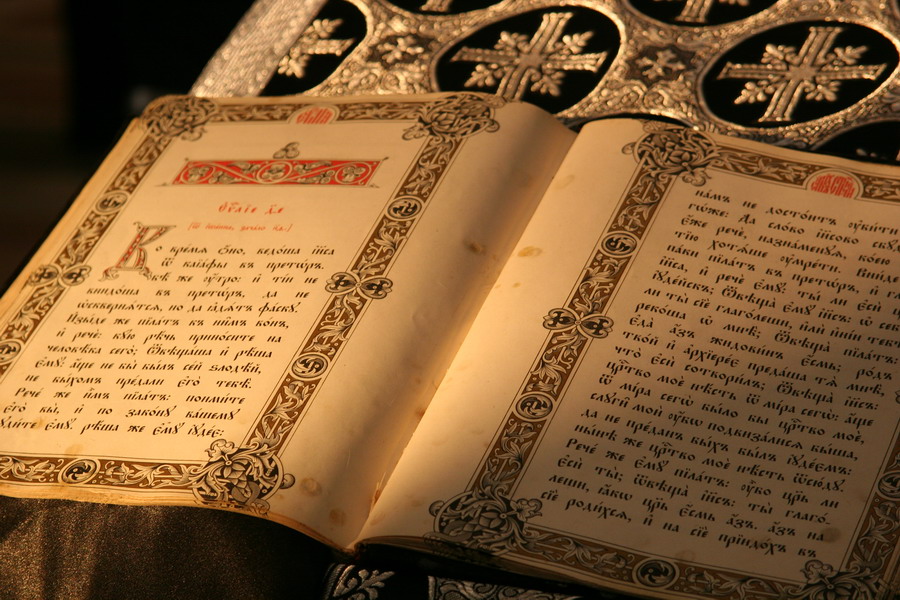 Еѵⷢ҇лїе д҃е
[Ѿ іѡанна, зача́ло н҃а:]
Во время ѻно, ведоша іи҃са
ѿ каїафы въ претѡръ.
бѣ же оутро: и тїи не
внидоша въ претѡръ, да не
ѡсквернятсѧ, но да ꙗдѧтъ фаскꙋ.
Изыде же пїлатъ къ нимъ вонъ,
и рече: кꙋю рѣчь приносите на
человѣка сего; Ѿвѣщаша и рѣша
ємꙋ: аще не бы былъ сей ѕлодѣй,
не быхомъ предали єго тебѣ.
Рече же имъ пїлатъ: поимите
єго вы, и по законꙋ вашемꙋ
сꙋдите ємꙋ. рѣша же ємꙋ їꙋдеє:
намъ не достоитъ оубити
Да слово іисово
єже рече, назнаменꙋѧ, коею
хотѧше оумрети. Вниде
паки пїлатъ въ претѡръ,
іи҃са, и рече ємꙋ: ты ли єси
їꙋдейскъ; Ѿвѣща ємꙋ іи҃съ: ѡ
ли ты сїе глаголеши, или инїи
рекоша ѡ мнѣ; Ѿвѣща пїлатъ:
єда азъ жидовинъ єсмь; родъ
твой и архїерее предаша тѧ мнѣ,
что єси сотворилъ; Ѿвѣща іи҃съ:
црⷭ҇тво мое нѣсть ѿ мїра сегѡ: аще
ѿ мїра сегѡ было бы црⷭ҇тво мое,
слꙋги мои оубѡ подвизалисѧ быша,
да не преданъ быхъ былъ їꙋдеѡмъ:
нынѣ же црⷭ҇тво мое нѣсть ѿсюдꙋ.
Рече же ємꙋ пїлатъ: оубо цр҃ь ли
єси ты; ѿвѣща іи҃съ: ты глаго-
леши, ꙗкѡ цр҃ь єсмь азъ. азъ на
сїе родихсѧ, и на сїе прїидохъ въ